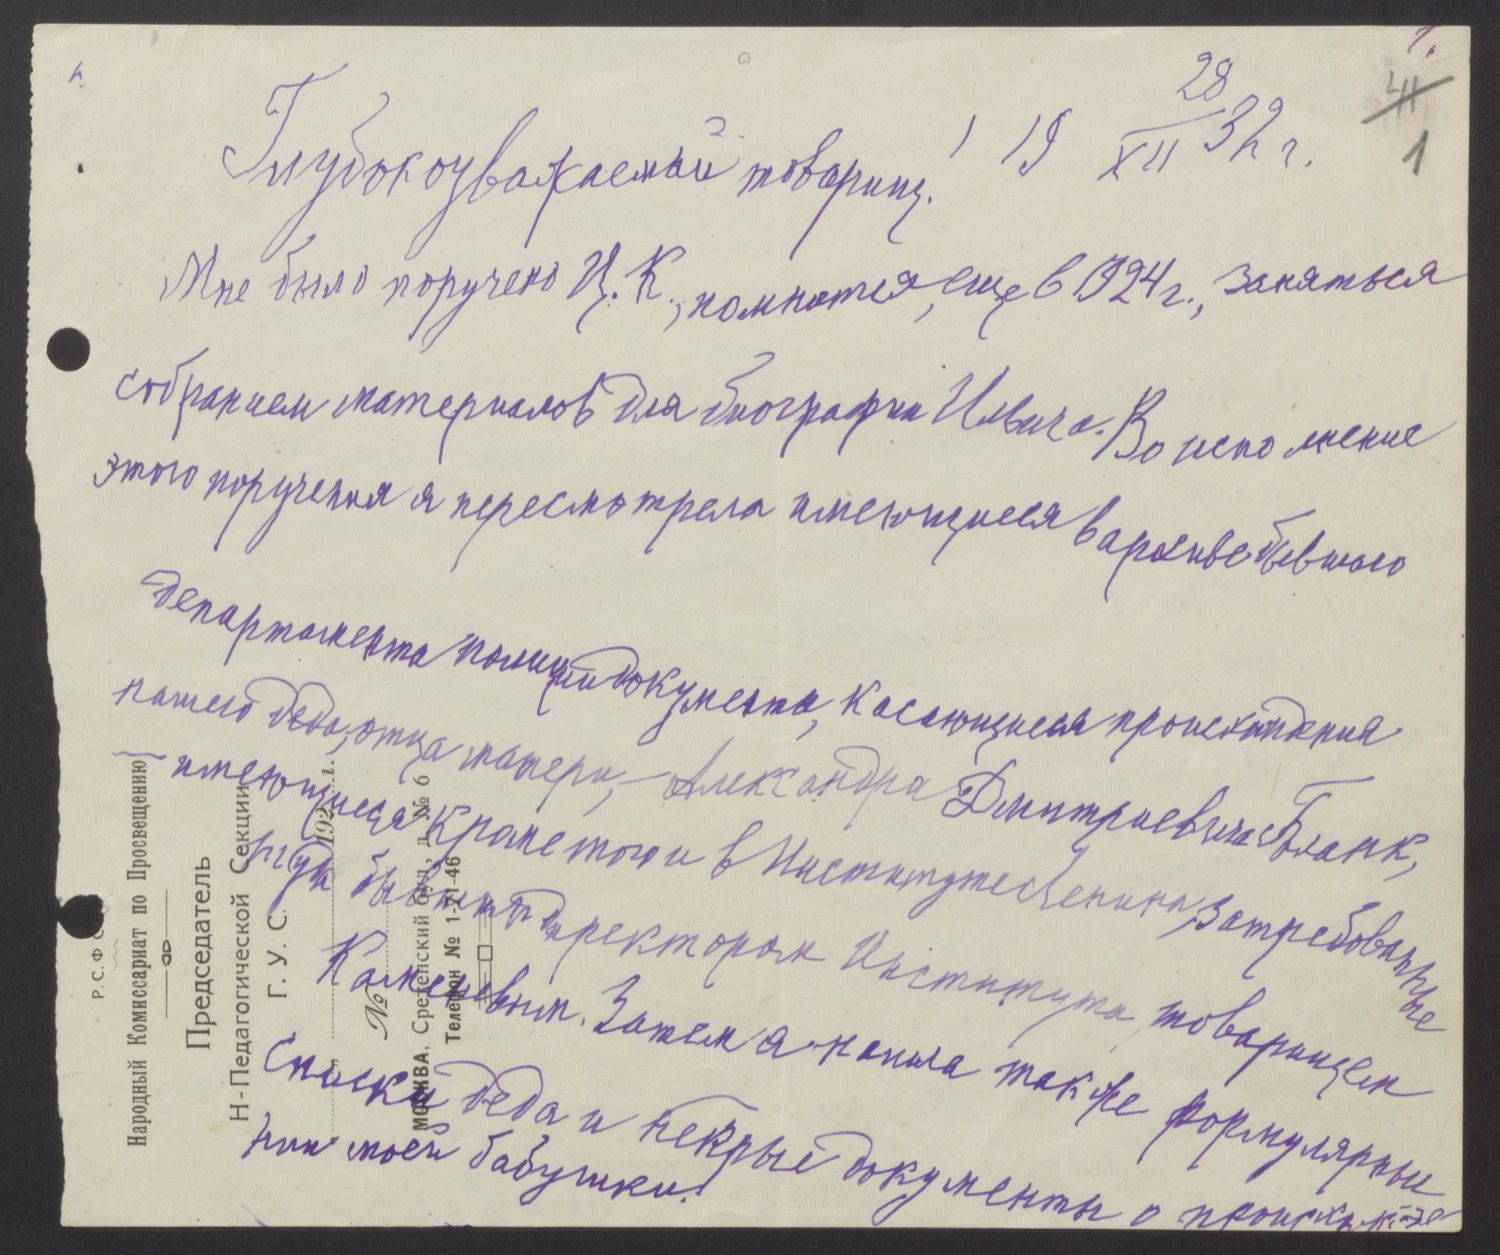 1.
41
1
19 28/XII 32 г.
Глубокоуважаемый товарищ!
Мне было поручено Ц.К., помнится, еще в 1924 г., заняться
собранием материалов для биографии Ильича. Во исполнение
этого поручения я пересмотрела имеющиеся в архиве бывшего
департамента полиции документы, касающиеся происхождения
нашего деда, отца матери, – Александра Дмитриевича Бланк,
имеющиеся кроме того и в Институте Ленина, затребованные
туда бывшим директором Института товарищем
Каменевым. Затем я нашла также формулярный
список деда и некрые документы о происхожде
нии моей бабушки.
Р.С.Ф.С
Народный Комиссариат по Просвещению
Председатель
Н-Педагогической Секции
Г. У. С.
192 г.
№
МОСКВА, Сретенский бул., д. № 6
Телефон № 1-71-46